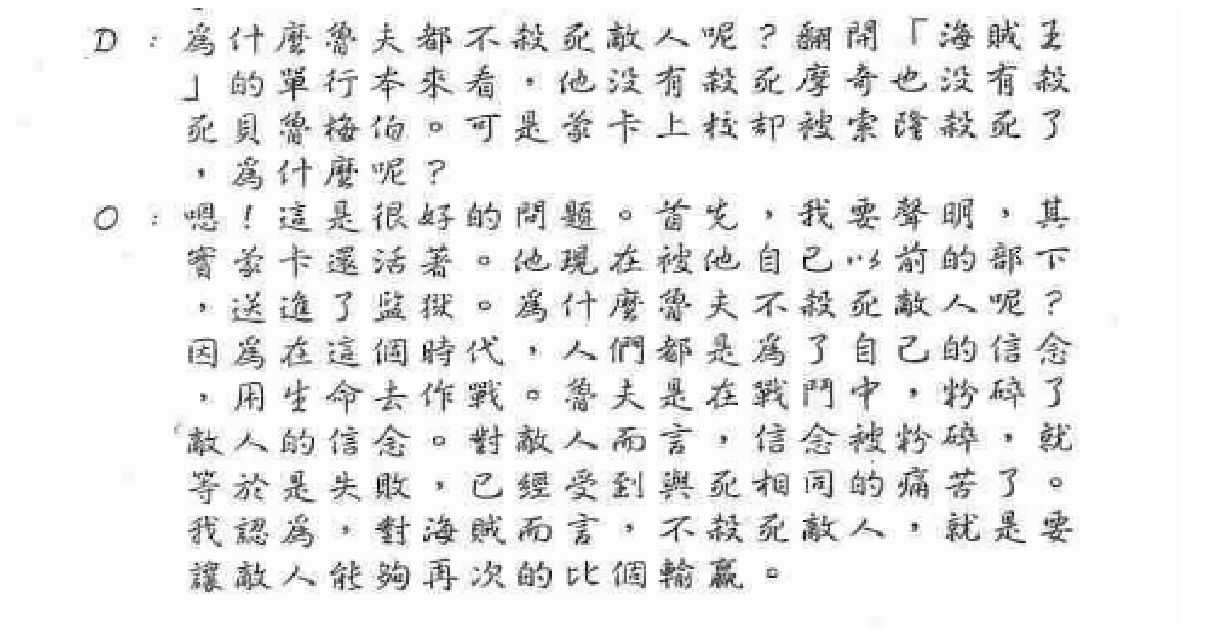 D：為什麼魯夫都不殺死敵人呢？翻開「海賊王
」的單行本來看，他没有殺死摩奇也没有殺
死貝魯梅伯。可是蒙卡上校却被索隆殺死了
，為什麼呢？
O：嗯！這是很好的問題。首先，我要聲明，其
實蒙卡還活著。他現在被他自己以前的部下
，送進了監獄。為什麼魯夫不殺死敵人呢？
因為在這個時代，人們都是為了自己的信念
，用生命去作戰。魯夫是在戰鬥中，粉碎了
敵人的信念。對敵人而言，信念被粉碎，就
等於是失敗，已經受到與死相同的痛苦了。
我認為，對海賊而言，不殺死敵人，就是要
讓敵人能夠再次的比個輸贏。